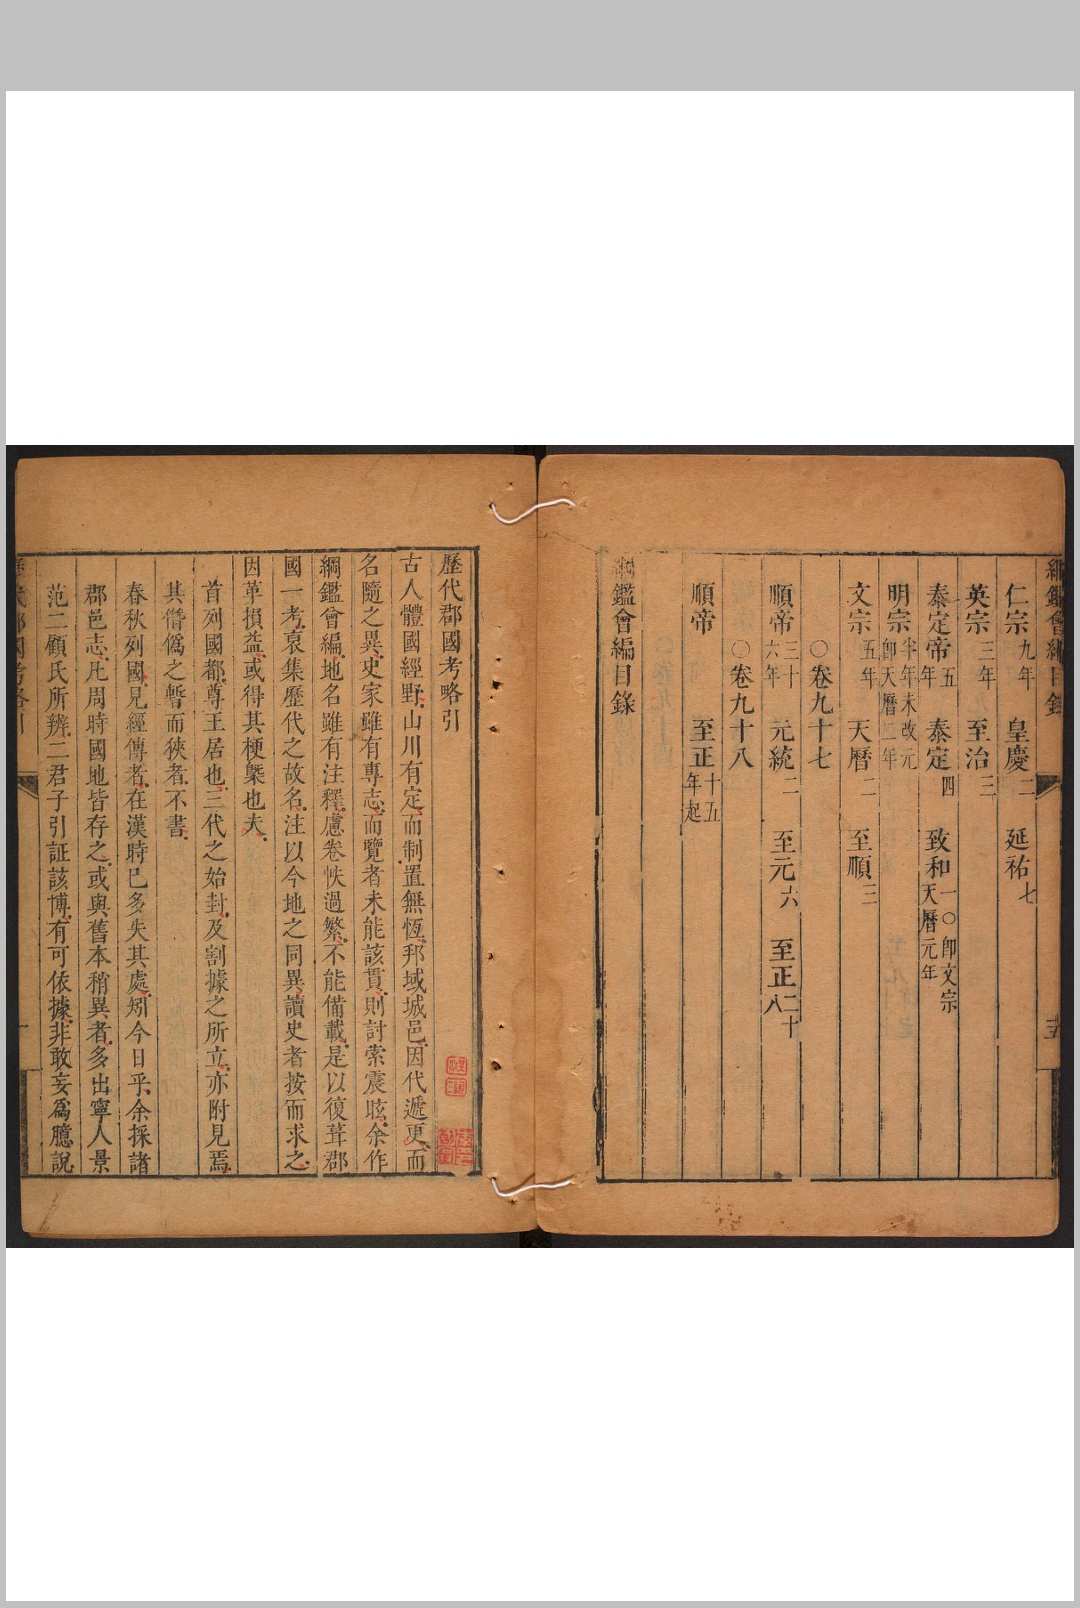 仁宗九年 皇慶二 延祐七
英宗三年 至治三
泰定帝五年 泰定四 致和一〇卽文宗天曆元年
明宗半年未改元卽天曆二年
文宗五年 天曆二 至順三
〇卷九十七
順帝三十六年 元統二 至元六 至正二十八
〇卷九十八
順帝 至正十五年起
綱鑑會編目錄
歷代郡國考略引
古人體國經野山川有定而制置無恆邦域城邑因代遞更而
名隨之異史家雖有專志而覽者未能該貫則討索震眩余作
綱鑑會編地名雖有注釋慮卷帙過繁不能備載是以復葺郡
國一考裒集歷代之故名注以今地之同異讀史者按而求之
因革損益或得其梗槩也夫
首列國都尊王居也三代之始封及割據之所立亦附見焉
其僭僞之暫而狹者不書
春秋列國見經傳者在漢時已多失其處矧今日乎余採諸
郡邑志凡周時國地皆存之或與舊本稍異者多出寧人景
范二顧氏所辨二君子引証該博有可依據非敢妄爲臆說